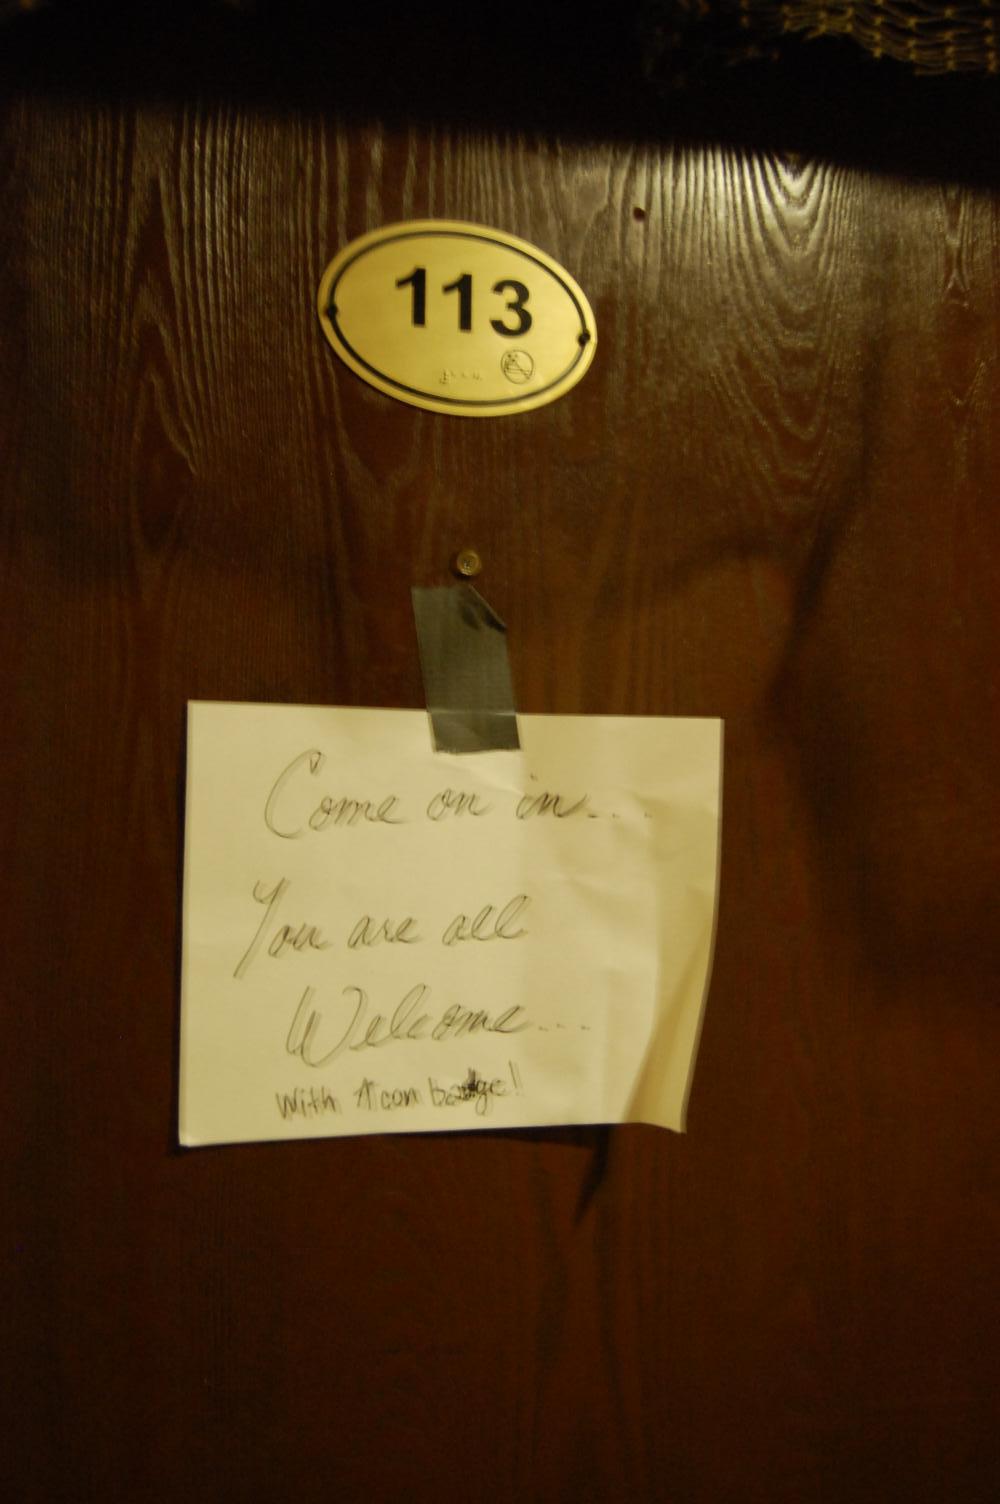 113
Come on in...
You are all
Welcome...
With A con badge!!